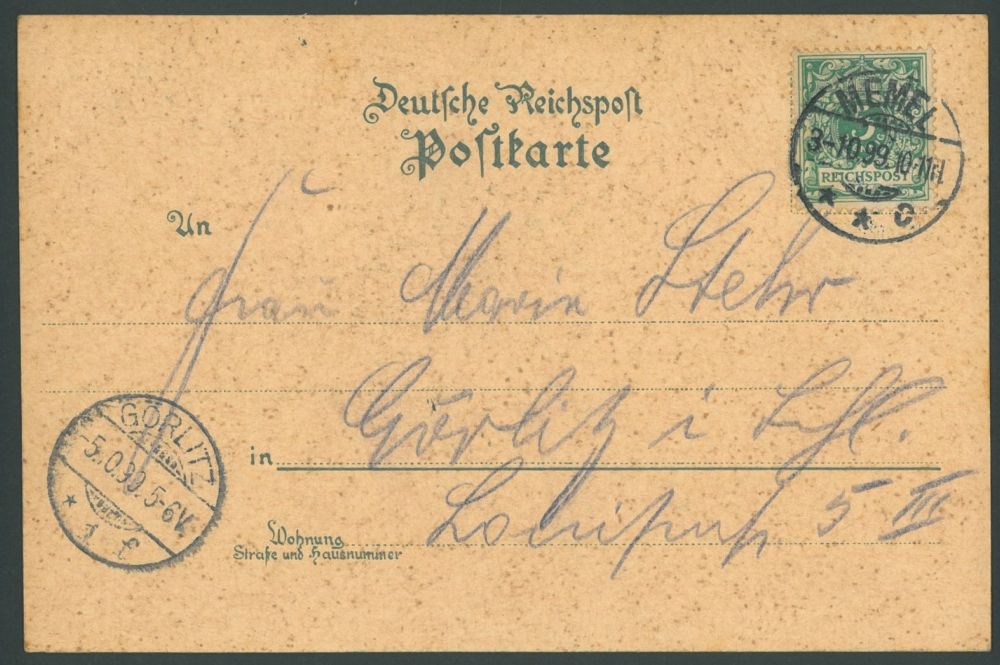 Deutsche Reichspost
Postkarte
MEMEL
3-10.99. 10-11V.
* * c
5
REICHSPOST
An
Frau Marie Stehr
Görlitz i Schl.
in
5 III
Wohnung
Straße und Hausnummer
GÖRLITZ
5.10.99. 5-6V.
* 1 f